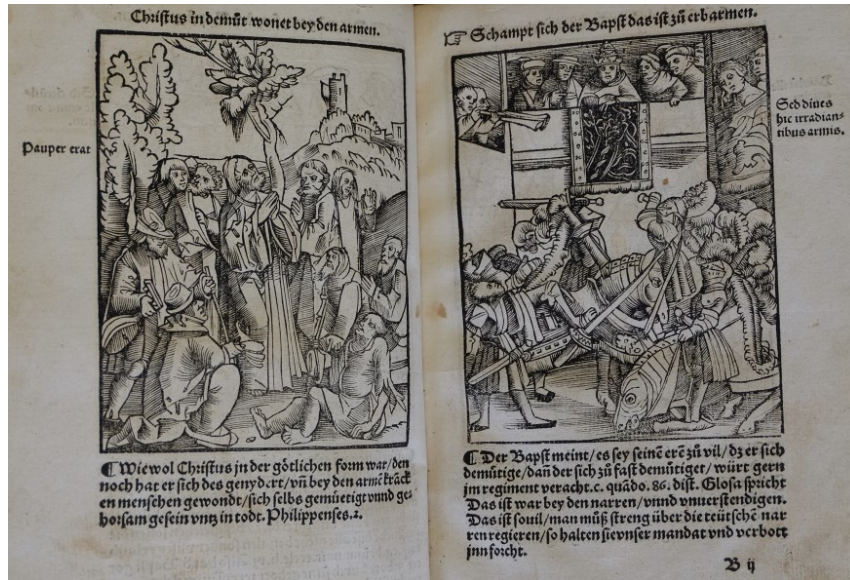 Christus in demůt wonet bey den armen.
Pauper erat
¶ Wiewol Christus in der götlichen form war/den
noch hat er sich des genydert/vñ bey den armē kräck
en menschen gewondt/sich selbs gemüetigt vnnd ge⸗
horsam gesein vntz in todt. Philippenses.2.
☞ Schampt sich der Bapst das ist zů erbarmen.
Sed diues
hic irradian⸗
tibus armis.
¶ Der Bapst meint/es sey seinē erē zů vil/dz er sich
demütige/dañ der sich zů fast demütiget/würt gern
jm regiment veracht.c. quādo. 86. dist. Glosa spricht
Das ist war bey den narren/vnnd vnuerstendigen.
Das ist souil/man můß streng über die teütschē nar
ren regieren/so halten sie vnser mandat vnd verbott
jnn forcht.
B ij